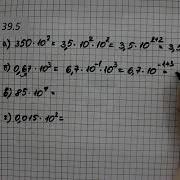 39.5
а) 350·10² = 3,5·10²·10² = 3,5·10²⁺² = 3,5
б) 0,67·10³ = 6,7·10⁻¹·10³ = 6,7·10⁻¹⁺³ =
в) 85·10⁴ =
г) 0,015·10² =